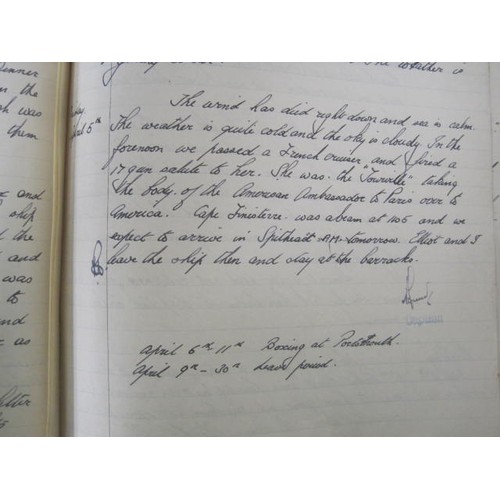 The weather is
dinner
on the
was
them
5th
The wind has died right down and sea is calm.
The weather is quite cold and the sky is cloudy. In the
forenoon we passed a French cruiser, and fired a
17 gun salute to her. She was the "Tourville" taking
the body of the American Ambassador to Paris over to
America. Cape Finisterre was abeam at 1105 and we
expect to arrive in Spithead A.M. tomorrow. Elliot and I
leave the ship then and stay at the barracks.
and
ship
the
and
was
to
and
as
April 6th 11th Boxing at Portsmouth.
April 9th - 30th Leave period.